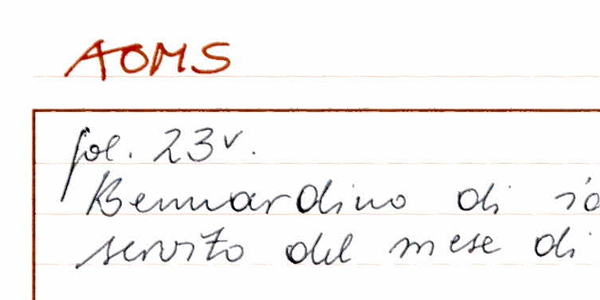 AOMS
fol. 23v.
Bernardino di
servito del mese di